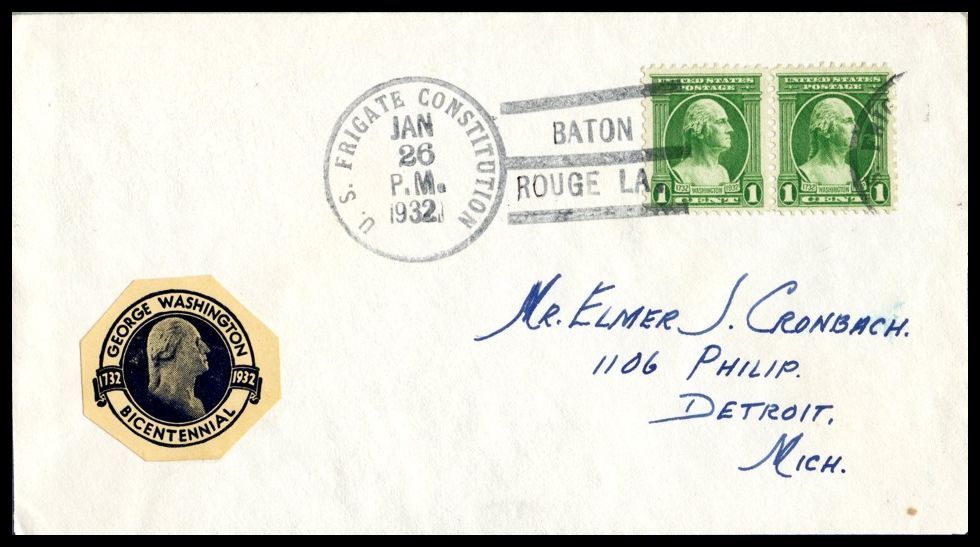 U. S. FRIGATE CONSTITUTION
JAN
26
P.M.
1932
BATON
ROUGE LA
UNITED STATES
POSTAGE
1732 WASHINGTON 1932
1 CENT 1
UNITED STATES
POSTAGE
1732 WASHINGTON 1932
1 CENT 1
GEORGE WASHINGTON
1732 1932
BICENTENNIAL
Mr. Elmer J. Cronbach.
1106 Philip.
Detroit,
Mich.